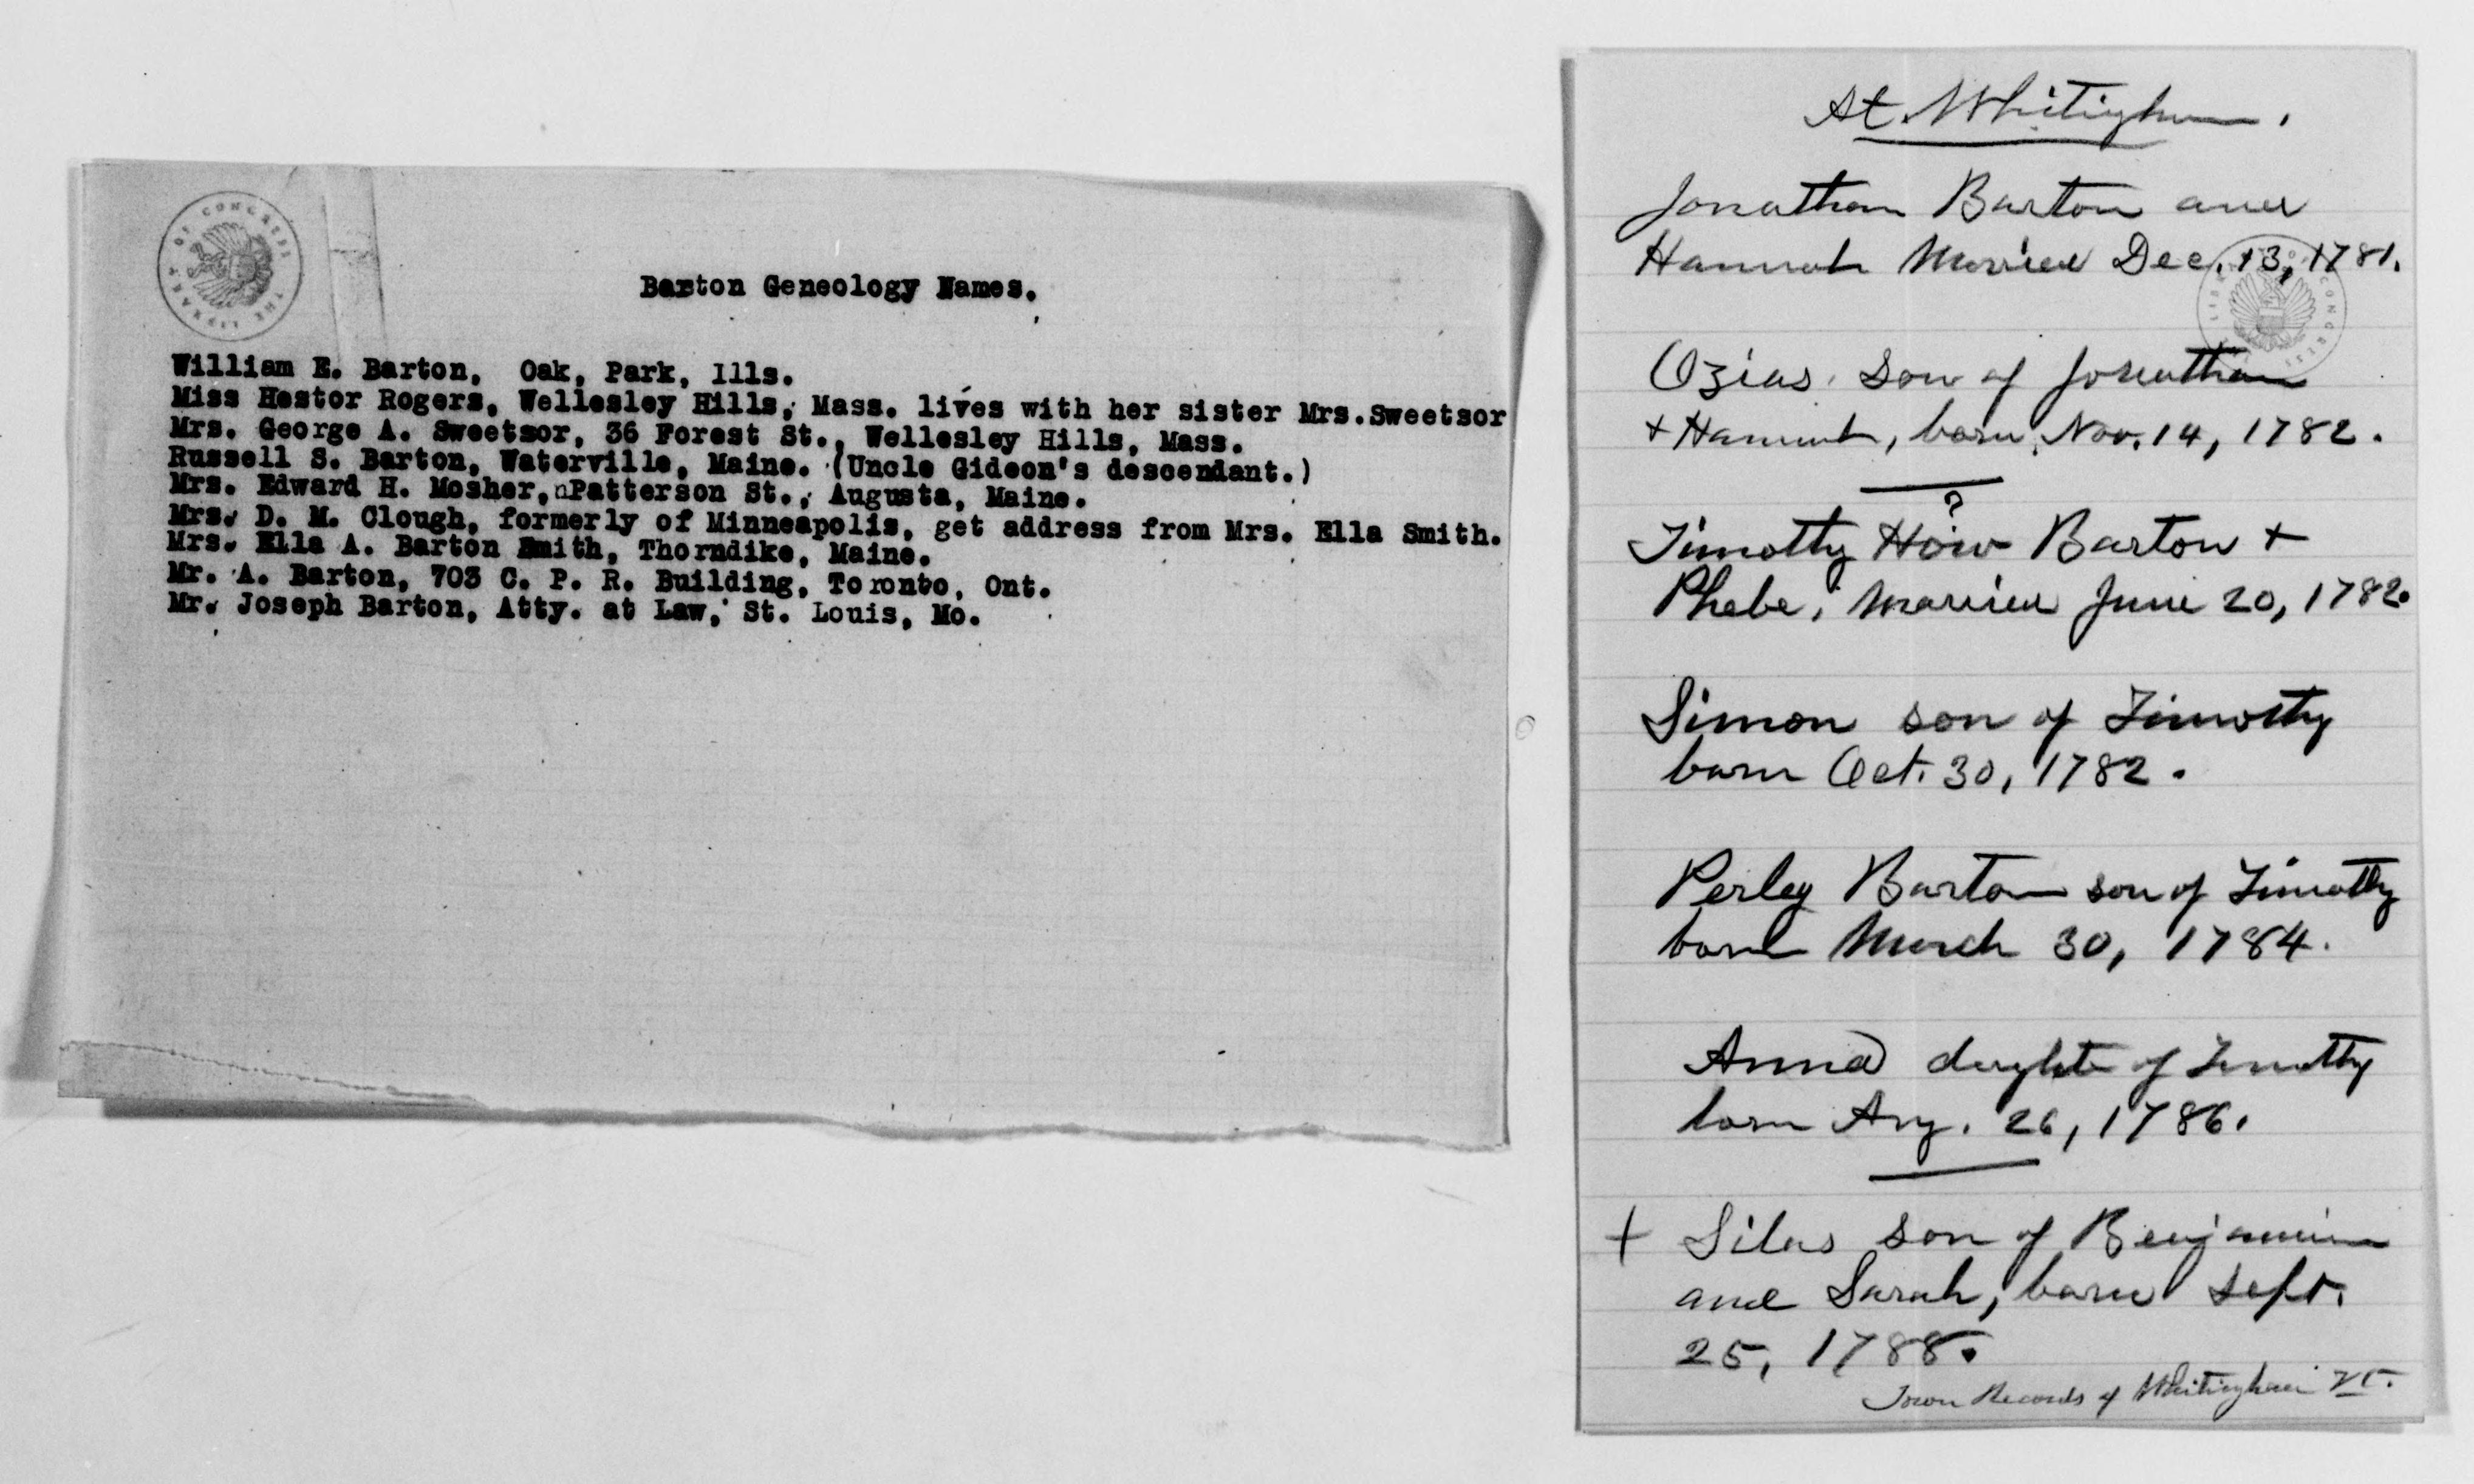 Barton Geneology Names.
William E. Barton, Oak, Park, Ills.
Miss Hestor Rogers, Wellesley Hills, Mass. lives with her sister Mrs.Sweetsor
Mrs. George A. Sweetsor, 36 Forest St., Wellesley Hills, Mass.
Russell S. Barton, Waterville, Maine. (Uncle Gideon's descendant.)
Mrs. Edward H. Mosher, Patterson St., Augusta, Maine.
Mrs. D. M. Clough, formerly of Minneapolis, get address from Mrs. Ella Smith.
Mrs. Ella A. Barton Smith, Thorndike, Maine.
Mr. A. Barton, 703 C. P. R. Building, Toronto, Ont.
Mr. Joseph Barton, Atty. at Law, St. Louis, Mo.
At Whitingham.
Jonathan Barton and
Hannah Married Dec. 13, 1781.
Ozias, son of Jonathan
+ Hannah, born, Nov. 14, 1782.
?
Timothy How Barton +
Phebe, married June 20, 1782.
Simon son of Timothy
born Oct. 30, 1782.
Perley Barton son of Timothy
born March 30, 1784.
Anna daughter of Timothy
born Aug. 26, 1786.
+ Silas son of Benjamin
and Sarah, born Sept.
25, 1788.
Town Records of Whitingham Vt.